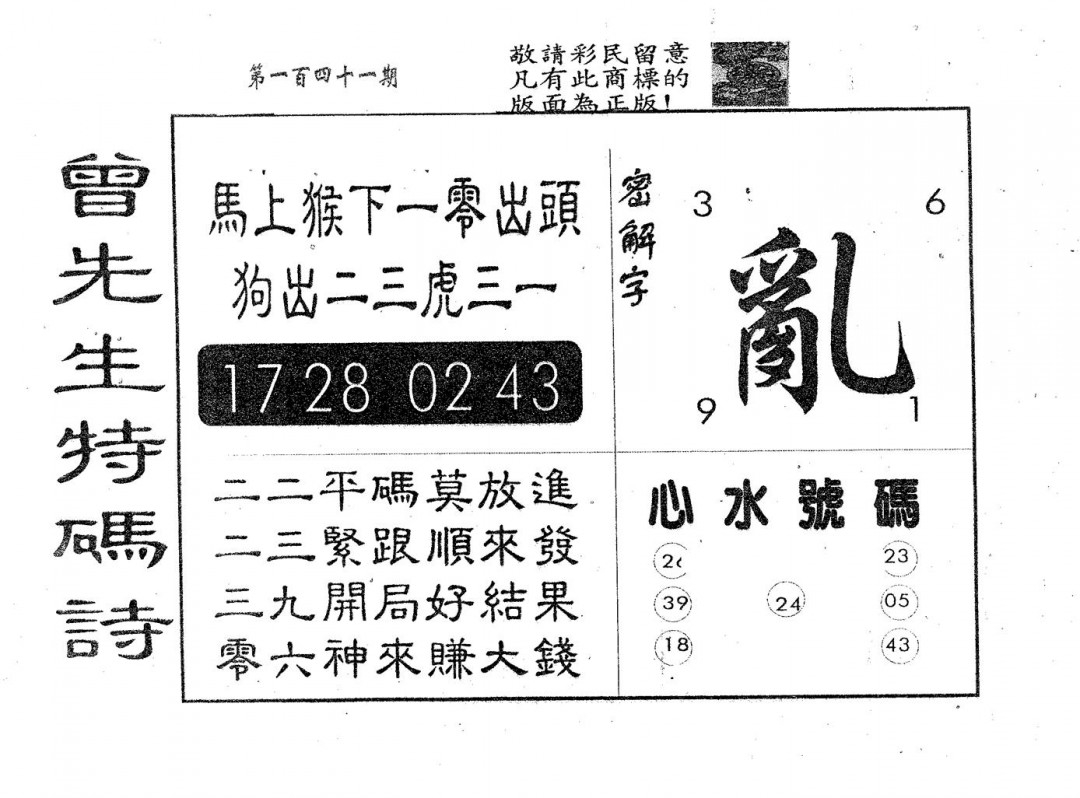 第一百四十一期
敬請彩民留意
凡有此商標的
版面為正版!
曾先生特碼詩
馬上猴下一零出頭
狗出二三虎三一
17 28 02 43
密解字
3 6
亂
9 1
二二平碼莫放進
二三緊跟順來發
三九開局好結果
零六神來賺大錢
心水號碼
26 23
39 24 05
18 43